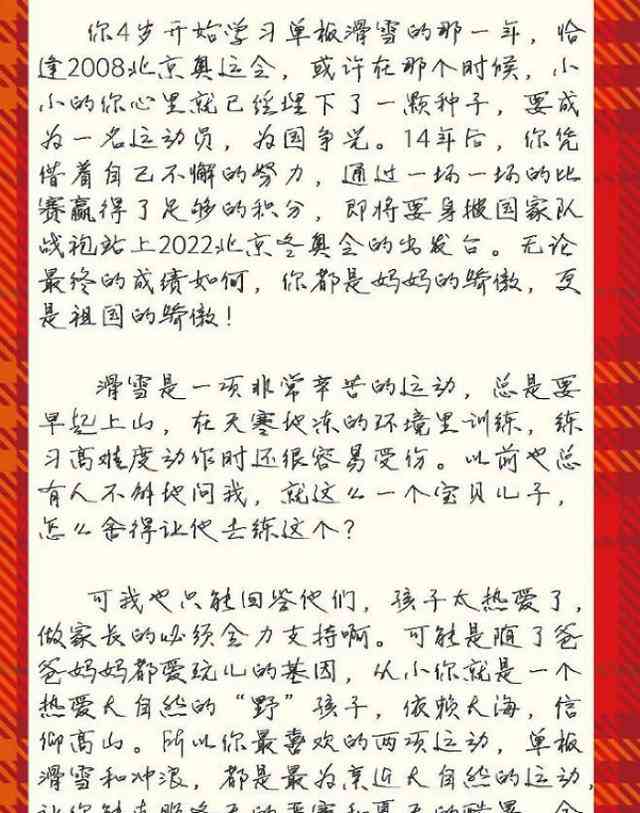 你4岁开始学习单板滑雪的那一年，恰
逢2008北京奥运会，或许在那个时候，小
小的你心里就已经埋下了一颗种子，要成
为一名运动员，为国争光。14年后，你凭
借着自己不懈的努力，通过一场一场的比
赛赢得了足够的积分，即将要身披国家队
战袍站上2022北京冬奥会的出发台。无论
最终的成绩如何，你都是妈妈的骄傲，更
是祖国的骄傲！
滑雪是一项非常辛苦的运动，总是要
早起上山，在天寒地冻的环境里训练，练
习高难度动作时还很容易受伤。以前也总
有人不解地问我，就这么一个宝贝儿子，
怎么舍得让他去练这个？
可我也只能回答他们，孩子太热爱了，
做家长的必须全力支持啊。可能是随了爸
爸妈妈都爱玩儿的基因，从小你就是一个
热爱大自然的“野”孩子，依赖大海，信
仰高山。所以你最喜欢的两项运动，单板
滑雪和冲浪，都是最为亲近大自然的运动，